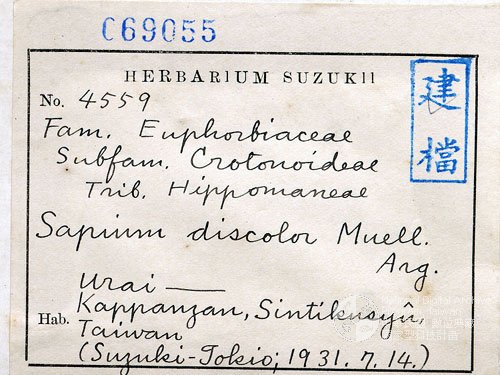 C69055
HERBARIUM SUZUKII
建檔
No. 4559
Fam. Euphorbiaceae
Subfam. Crotonoideae
Trib. Hippomaneae
Sapium discolor Muell.
Arg.
Urai —
Hab. Kappanzan, Sintikusyû,
Taiwan
(Suzuki-Tokio; 1931. 7. 14.)